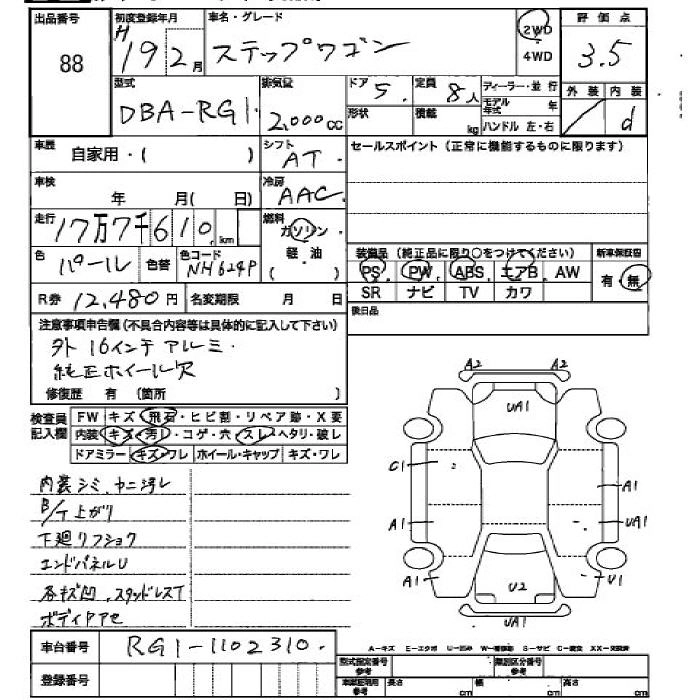 出品番号 初度登録年月 車名・グレード 2WD 評価点
88 H 19 2月 ステップワゴン 4WD 3.5
型式 排気量 ドア 5. 定員 8人 ディーラー・並行 外装 内装
DBA-RG1. 2,000cc 形状 積載 kg モデル年式 年 d
ハンドル 左・右
車歴 自家用・( ) シフト AT. セールスポイント (正常に機能するものに限ります)
車検 年 月( 日) 冷房 AAC
走行 17万7千610 km 燃料 ガソリン
軽・油
( )
色 パール 色替 色コード NH624P 装備品 (純正品に限り○をつけてください) 新車保証書
PS PW ABS エアB AW 有・無
R券 12,480円 名変期限 月 日 SR ナビ TV カワ
注意事項申告欄(不具合内容等は具体的に記入して下さい) 後日品
外 16インチアルミ.
純正ホイール欠
修復歴 有 (箇所 )
検査員記入欄 FW キズ・飛石・ヒビ割・リペア跡・X要
内装 キズ・汚レ・コゲ・穴・スレ・ヘタリ・破レ
ドアミラー キズ・ワレ ホイール・キャップ キズ・ワレ
内装シミ.ヤニ汚レ
B/T上がり
下廻リフショク
エンドパネルU
各キズ凹.スタッドレスT
ボディアセ
A2 A2
UA1
C1 A1
A1 UA1
A1 U1
U2
UA1
車台番号 RG1-1102310.
A-キズ E-エクボ U-凹み W-補修跡 S-サビ C-腐食 XX-交換済
登録番号 型式指定番号 参考 類別区分番号 参考
長さ cm 幅 cm 高さ cm